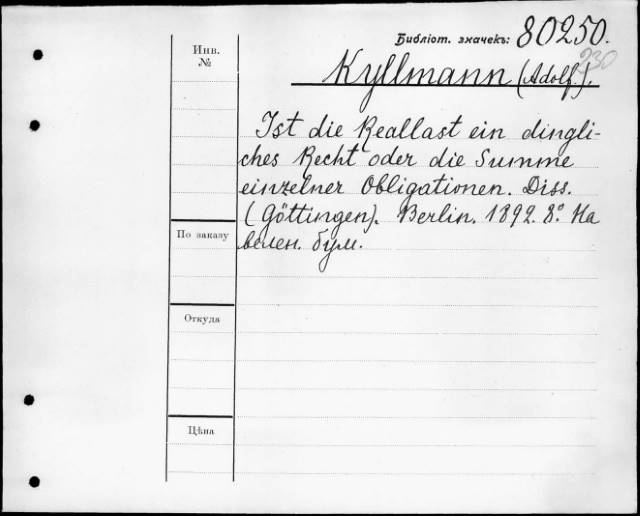 Библіот. значекъ: 80250.
330
Инв.
№
Kyllmann (Adolf.).
Ist die Reallast ein dingli-
ches Recht oder die Summe
einzelner Obligationen. Diss.
(Göttingen). Berlin. 1892. 8º. На
велен. бум.
По заказу
Откуда
Цѣна